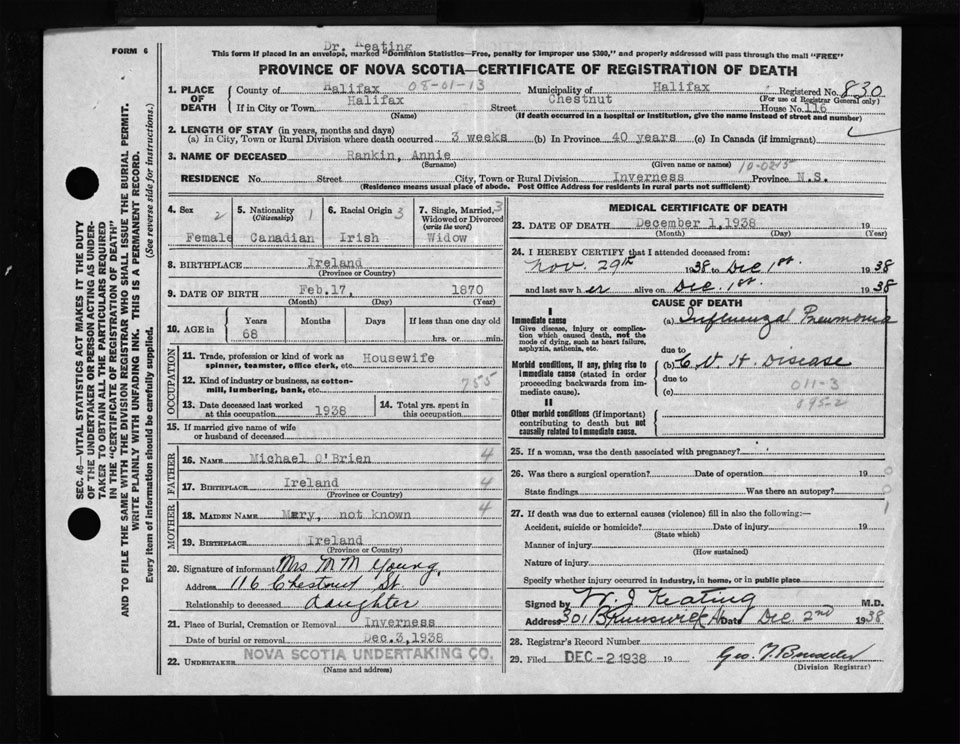 FORM 6
Dr. Keating
This form if placed in an envelope, marked "Dominion Statistics—Free, penalty for improper use $300," and properly addressed will pass through the mail "FREE"
PROVINCE OF NOVA SCOTIA—CERTIFICATE OF REGISTRATION OF DEATH
1. PLACE OF DEATH
County of Halifax 08-01-13 Municipality of Halifax Registered No. 830
(For use of Registrar General only)
If in City or Town Halifax Street Chestnut House No. 116
(Name) (If death occurred in a hospital or institution, give name instead of street and number)
2. LENGTH OF STAY (in years, months and days)
(a) In City, Town or Rural Division where death occurred 3 weeks (b) In Province 40 years (c) In Canada (if immigrant)
3. NAME OF DECEASED Rankin, Annie
(Surname) (Given name or names) 10-0245
RESIDENCE No. Street City, Town or Rural Division Inverness Province N.S.
(Residence means usual place of abode. Post Office Address for residents in rural parts not sufficient)
4. Sex 2 Female
5. Nationality (Citizenship) 1 Canadian
6. Racial Origin 3 Irish
7. Single, Married, Widowed or Divorced (write the word) 3 Widow
8. BIRTHPLACE Ireland
(Province or Country)
9. DATE OF BIRTH Feb.17, 1870
(Month) (Day) (Year)
10. AGE in Years Months Days If less than one day old
68 hrs. or min.
OCCUPATION
11. Trade, profession or kind of work as spinner, teamster, office clerk, etc. Housewife
12. Kind of industry or business, as cotton-mill, lumbering, bank, etc. 755
13. Date deceased last worked at this occupation 1938
14. Total yrs. spent in this occupation
15. If married give name of wife or husband of deceased
FATHER
16. NAME Michael O'Brien 4
17. BIRTHPLACE Ireland 4
(Province or Country)
MOTHER
18. MAIDEN NAME Mary, not known 4
19. BIRTHPLACE Ireland
(Province or Country)
20. Signature of informant Mrs M M Young,
Address 116 Chestnut St.
Relationship to deceased daughter
21. Place of Burial, Cremation or Removal Inverness
Date of burial or removal Dec.3,1938
22. UNDERTAKER NOVA SCOTIA UNDERTAKING CO.
(Name and Address)
MEDICAL CERTIFICATE OF DEATH
23. DATE OF DEATH December 1,1938 19
(Month) (Day) (Year)
24. I HEREBY CERTIFY that I attended deceased from:
Nov. 29th 1938 to Dec 1st. 1938
and last saw her alive on Dec. 1st. 1938
CAUSE OF DEATH
I
Immediate cause
Give disease, injury or complication which caused death, not the mode of dying, such as heart failure, asphyxia, asthenia, etc.
(a) Influenzal Pneumonia
due to
Morbid conditions, if any, giving rise to immediate cause (stated in order proceeding backwards from immediate cause).
(b) C V H Disease
due to
(c) 011-3
095-2
II
Other morbid conditions (if important) contributing to death but not causally related to immediate cause.
25. If a woman, was the death associated with pregnancy?
26. Was there a surgical operation? Date of operation 19
State findings Was there an autopsy?
27. If death was due to external causes (violence) fill in also the following:—
Accident, suicide or homicide? Date of injury 19
(State which)
Manner of injury
(How sustained)
Nature of injury
Specify whether injury occurred in industry, in home, or in public place
Signed by W. J Keating M.D.
Address 301 Brunswick Date Dec. 2nd 1938
28. Registrar's Record Number
29. Filed DEC -2 1938 19
(Division Registrar)
SEC. 46—VITAL STATISTICS ACT MAKES IT THE DUTY
OF THE UNDERTAKER OR PERSON ACTING AS UNDER-
TAKER TO OBTAIN ALL THE PARTICULARS REQUIRED
IN THE "CERTIFICATE OF REGISTRATION OF DEATH"
AND TO FILE THE SAME WITH THE DIVISION REGISTRAR WHO SHALL ISSUE THE BURIAL PERMIT.
WRITE PLAINLY WITH UNFADING INK. THIS IS A PERMANENT RECORD.
Every item of information should be carefully supplied. (See reverse side for instructions.)